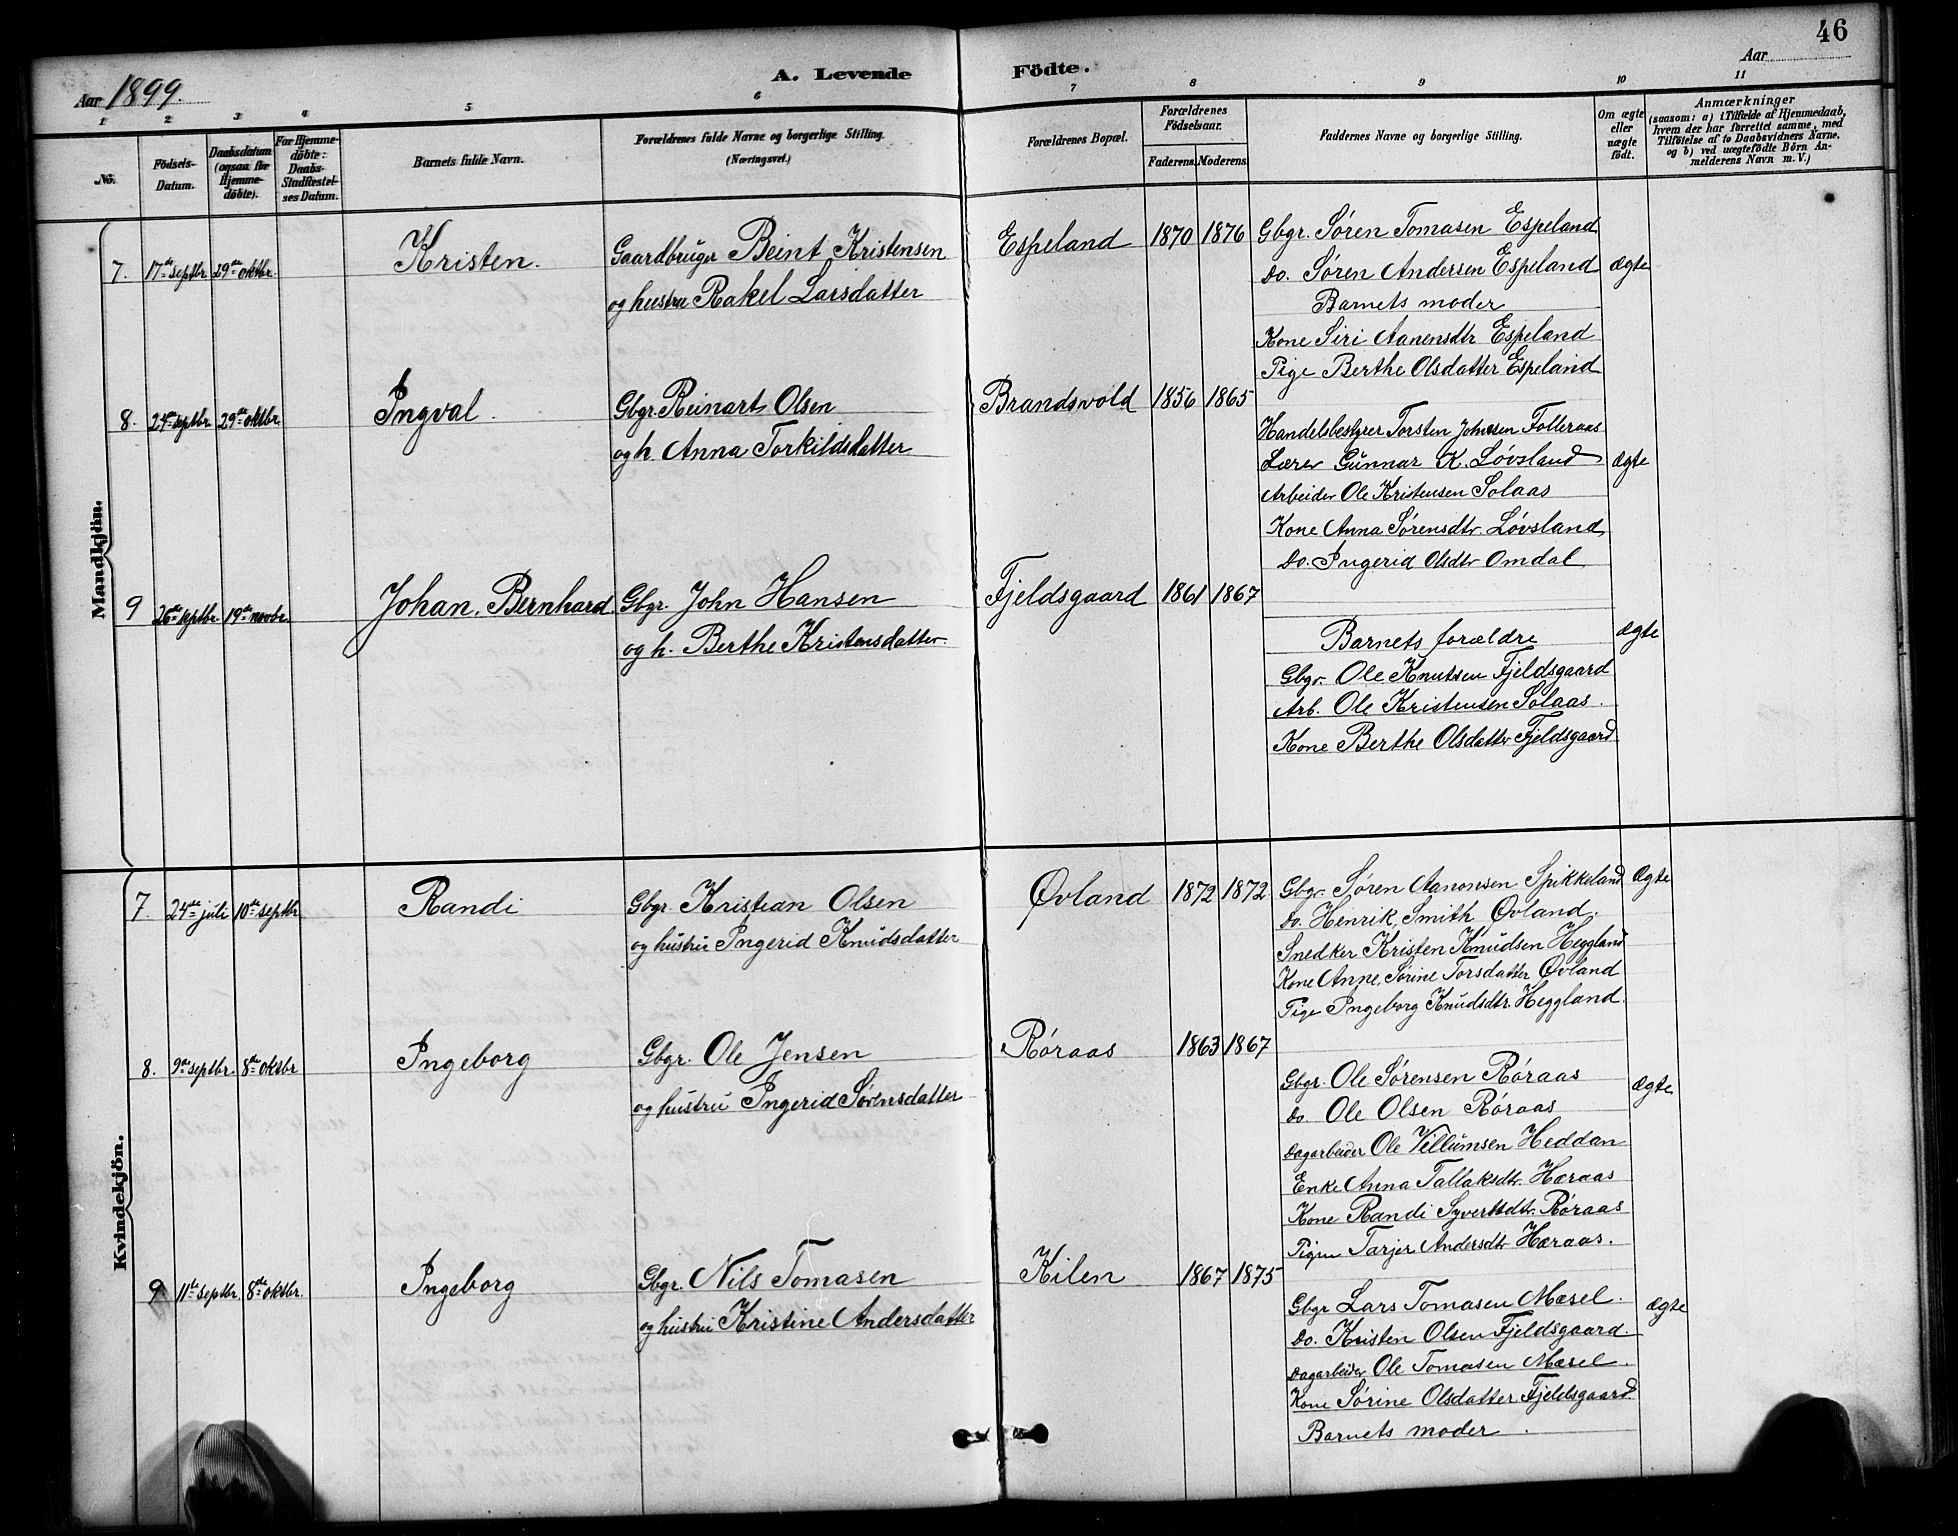 46
Aar 1899.
A. Levende Födte.
Aar
1 2 3 4 5 6 7 8 9 10 11
No.
Födsels-Datum.
Daabsdatum (ogsaa for Hjemme-döbte).
For Hjemme-döbte: Daabs-Stadfæstel-ses Datum.
Barnets fulde Navn.
Forældrenes fulde Navne og borgerlige Stilling.
(Næringsvei.)
Forældrenes Bopæl.
Forældrenes Födselsaar.
Faderens. Moderens.
Faddernes Navne og borgerlige Stilling.
Om ægte eller uægte födt.
Anmærkninger
(saasom: a) i Tilfælde af Hjemmedaab,
hvem der har forrettet samme, med
Tilföielse af to Daabsvidners Navne,
og b) ved uægtefödte Börn An-
melderens Navn m. V.)
Mandkjön.
7. 17de septbr 29de oktbr. Kristen. Gaardbruger Beint Kristensen Espeland 1870 1876 Gbgr. Søren Tomasen Espeland
og hustru Rakel Larsdatter do. Søren Andersen Espeland ægte
Barnets moder
Kone Siri Aanensdtr Espeland
Pige Berthe Olsdatter Espeland
8. 24de septbr. 29de oktbr. Ingval. Gbgr. Reinart Olsen Brandsvold 1856 1865
og h. Anna Torkildsdatter Handelsbestyrer Torsten Johnsen Folleraas
Lærer Gunnar K. Løvsland ægte
Arbeider Ole Kristensen Solaas
Kone Anna Sørensdtr. Løvsland
do. Ingerid Olsdtr Omdal
9 26de septbr. 19de novbr. Johan Bernhard. Gbgr. John Hansen Fjeldsgaard 1861 1867
og h. Berthe Kristensdatter Barnets forældre ægte
Gbgr. Ole Knutsen Fjeldsgaard
Arb. Ole Kristensen Solaas.
Kone Berthe Olsdatter Fjeldsgaard
Kvindekjön.
7. 24de juli 10de septbr Randi Gbgr. Kristian Olsen Øvland 1872 1872 Gbgr. Søren Aanonsen Spikkeland Ægte
og hustru Ingerid Knudsdatter do. Henrik Smith Øvland.
Snedker Kristen Knudsen Heggland
Kone Anne Sørine Torsdatter Øvland
Pige Ingeborg Knudsdtr. Heggland.
8. 9de septbr. 8de oktbr Ingeborg Gbgr. Ole Jensen Røraas 1863 1867
og hustru Ingerid Sørensdatter Gbgr. Ole Sørensen Røraas ægte
do Ole Olsen Røraas
dagarbeider Ole Villumsen Heddan
Enke Anna Tallaksdtr. Høraas
Kone Randi Syvertsdtr. Røraas
Pigen Tarjer Andersdtr Høraas.
9. 11te septbr. 8de oktbr. Ingeborg Gbgr. Nils Tomasen Kilen 1867 1875
og hustru Kristine Andersdatter Gbgr Lars Tomasen Mæsel. ægte
do. Kristen Olsen Fjeldsgaard.
dagarbeider Ole Tomasen Mæsel.
Kone Sørine Olsdatter Fjeldsgaard.
Barnets moder.